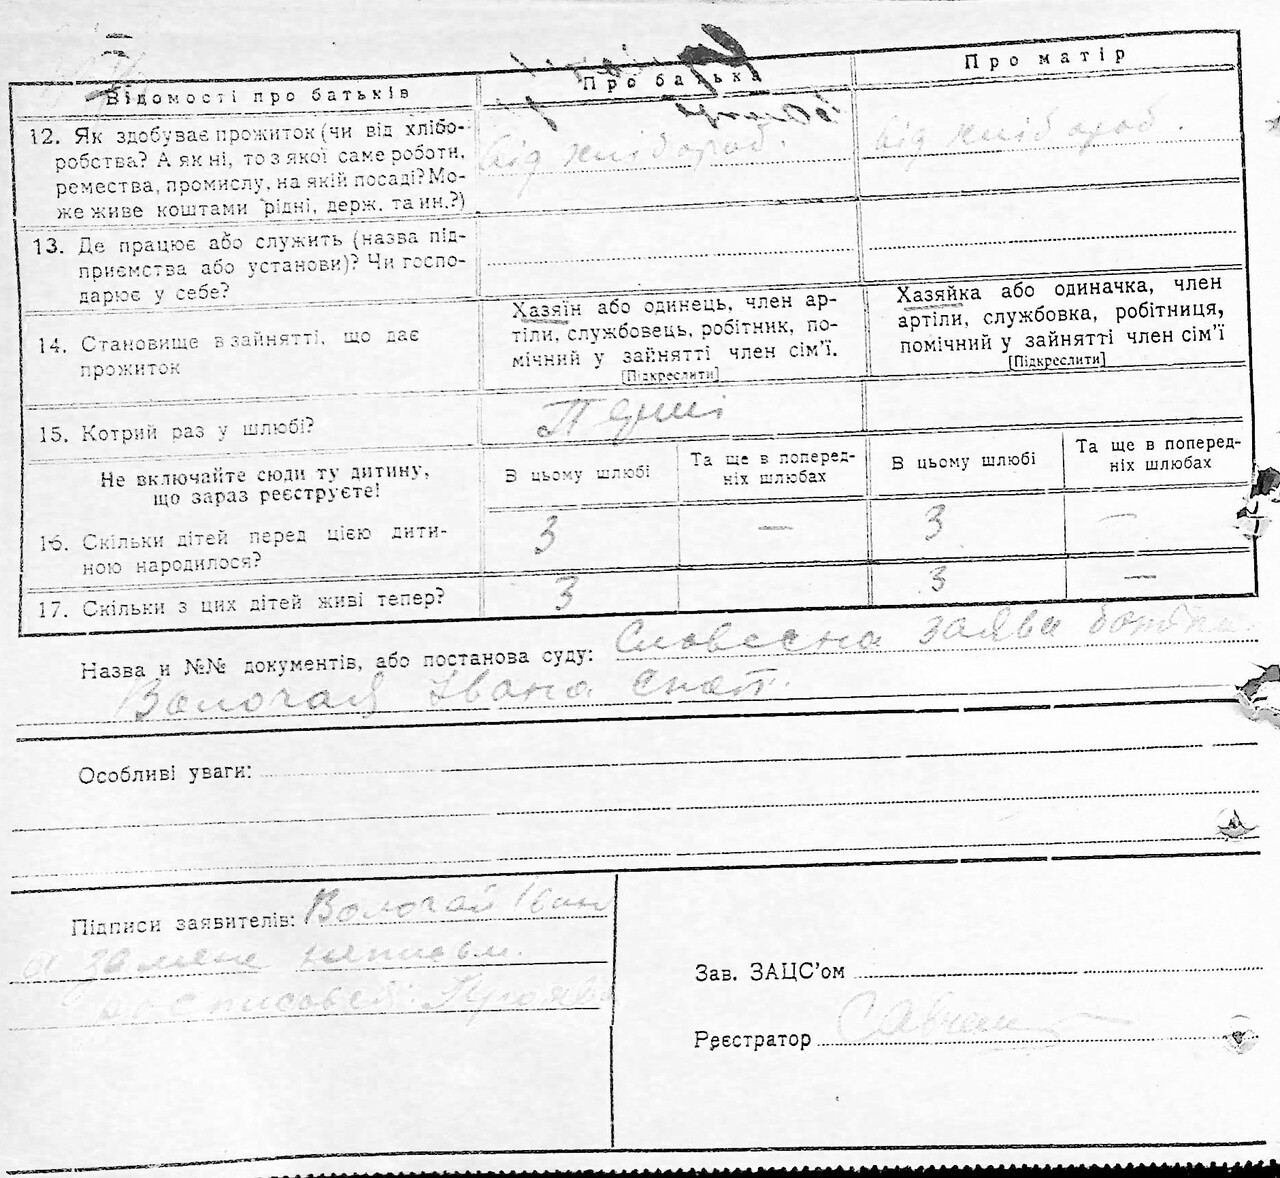 Відомості про батьків
Про батька
Про матір
12. Як здобуває прожиток (чи від хлібо-
робства? А як ні, то з якої саме роботи,
ремества, промислу, на якій посаді? Мо-
же живе коштами рідні, держ. та ин.?)
від хлібороб.
від хлібороб.
13. Де працює або служить (назва під-
приємства або установи)? Чи госпо-
дарює у себе?
14. Становище в зайнятті, що дає
прожиток
Хазяїн або одинець, член ар-
тіли, службовець, робітник, по-
мічний у зайнятті член сім'ї.
[Підкреслити]
Хазяйка або одиначка, член
артіли, службовка, робітниця,
помічний у зайнятті член сім'ї
[Підкреслити]
15. Котрий раз у шлюбі?
Перші
Не включайте сюди ту дитину,
що зараз реєструєте!
В цьому шлюбі
Та ще в поперед-
ніх шлюбах
В цьому шлюбі
Та ще в поперед-
ніх шлюбах
16. Скільки дітей перед цією дити-
ною народилося?
3 — 3 —
17. Скільки з цих дітей живі тепер?
3 3 —
Назва и №№ документів, або постанова суду: Словесна заява батька
Волочая Івана
Особливі уваги:
Підписи заявителів: Волочай Іван
а за мене неписьм.
Зав. ЗАЦС'ом
Реєстратор